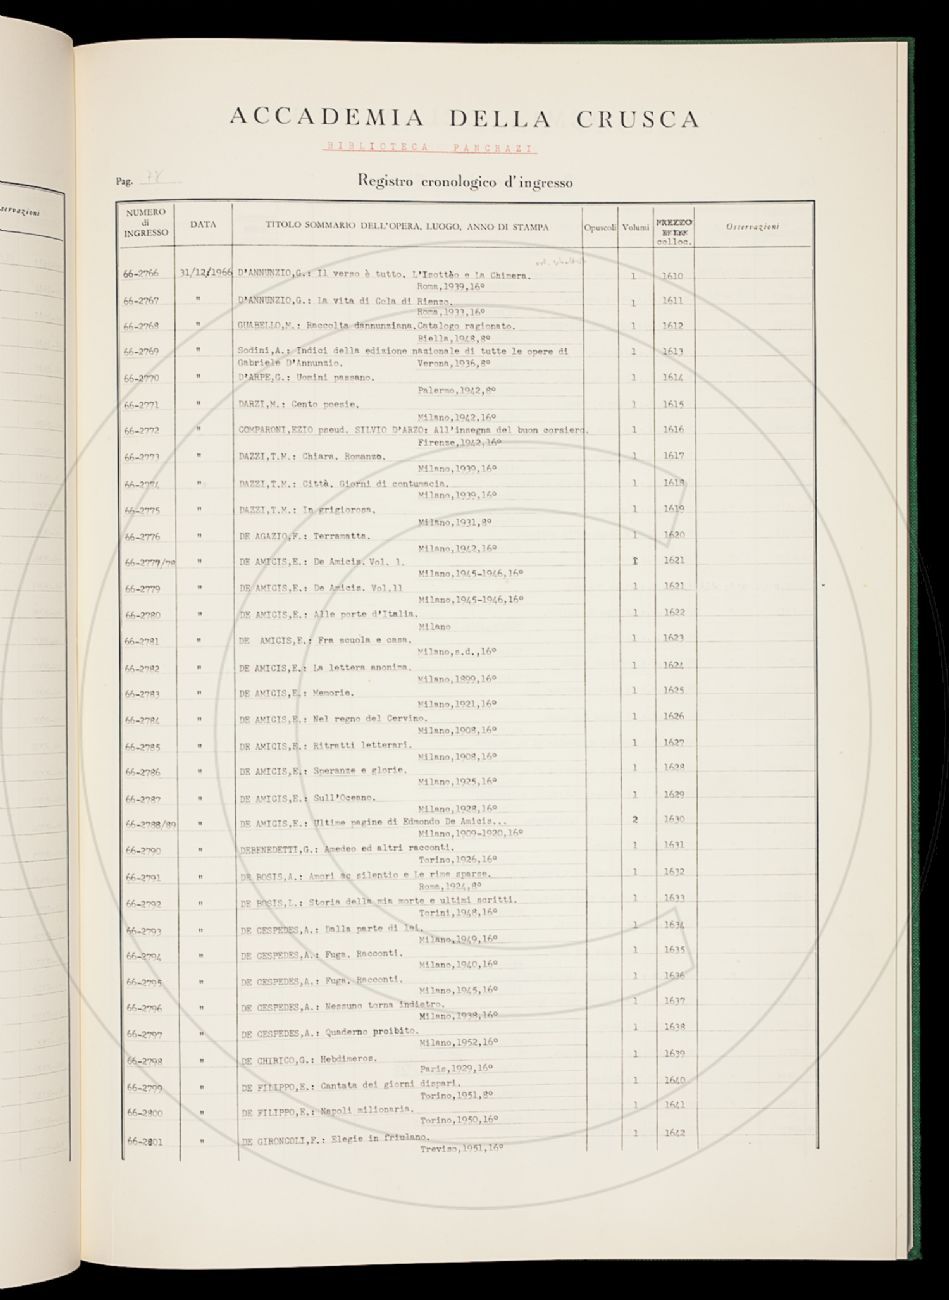 servazioni
ACCADEMIA DELLA CRUSCA
BIBLIOTECA PANCRAZI
Pag. 78
Registro cronologico d'ingresso
NUMERO di INGRESSO DATA TITOLO SOMMARIO DELL'OPERA, LUOGO, ANNO DI STAMPA Opuscoli Volumi PREZZO colloc. Osservazioni
66-2766 31/12/1966 D'ANNUNZIO,G.: Il verso è tutto. L'Isottèo e la Chimera. 1 1610
Roma,1939,16º
66-2767 " D'ANNUNZIO,G.: La vita di Cola di Rienzo. 1 1611
Roma,1933,16º
66-2768 " GUABELLO,M.: Raccolta dannunziana.Catalogo ragionato. 1 1612
Biella,1948,8º
66-2769 " Sodini,A.: Indici della edizione nazionale di tutte le opere di 1 1613
Gabriele D'Annunzio. Verona,1936,8º
66-2770 " D'ARPE,G.: Uomini passano. 1 1614
Palermo,1942,8º
66-2771 " DARZI,M.: Cento poesie. 1 1615
Milano,1942,16º
66-2772 " COMPARONI,EZIO pseud. SILVIO D'ARZO: All'insegna del buon corsiero. 1 1616
Firenze,1942,16º
66-2773 " DAZZI,T.M.: Chiara. Romanzo. 1 1617
Milano,1939,16º
66-2774 " DAZZI,T.M.: Città. Giorni di contumacia. 1 1618
Milano,1939,16º
66-2775 " DAZZI,T.M.: In grigiorosa. 1 1619
Milano,1931,8º
66-2776 " DE AGAZIO,F.: Terramatta. 1 1620
Milano,1942,16º
66-2777/78 " DE AMICIS,E.: De Amicis. Vol. 1. 1 1621
Milano,1945-1946,16º
66-2779 " DE AMICIS,E.: De Amicis. Vol.11 1 1621
Milano,1945-1946,16º
66-2780 " DE AMICIS,E.: Alle porte d'Italia. 1 1622
Milano
66-2781 " DE AMICIS,E.: Fra scuola e casa. 1 1623
Milano,s.d.,16º
66-2782 " DE AMICIS,E.: La lettera anonima. 1 1624
Milano,1899,16º
66-2783 " DE AMICIS,E.: Memorie. 1 1625
Milano,1921,16º
66-2784 " DE AMICIS,E.: Nel regno del Cervino. 1 1626
Milano,1908,16º
66-2785 " DE AMICIS,E.: Ritratti letterari. 1 1627
Milano,1908,16º
66-2786 " DE AMICIS,E.: Speranze e glorie. 1 1628
Milano,1925,16º
66-2787 " DE AMICIS,E.: Sull'Oceano. 1 1629
Milano,1928,16º
66-2788/89 " DE AMICIS,E.: Ultime pagine di Edmondo De Amicis... 2 1630
Milano,1909-1920,16º
66-2790 " DEBENEDETTI,G.: Amedeo ed altri racconti. 1 1631
Torino,1926,16º
66-2791 " DE BOSIS,A.: Amori ac silentio e Le rime sparse. 1 1632
Roma,1924,8º
66-2792 " DE BOSIS,L.: Storia della mia morte e ultimi scritti. 1 1633
Torini,1948,16º
66-2793 " DE CESPEDES,A.: Dalla parte di lei. 1 1634
Milano,1949,16º
66-2794 " DE CESPEDES,A.: Fuga. Racconti. 1 1635
Milano,1940,16º
66-2795 " DE CESPEDES,A.: Fuga. Racconti. 1 1636
Milano,1945,16º
66-2796 " DE CESPEDES,A.: Nessuno torna indietro. 1 1637
Milano,1938,16º
66-2797 " DE CESPEDES,A.: Quaderno proibito. 1 1638
Milano,1952,16º
66-2798 " DE CHIRICO,G.: Hebdimeros. 1 1639
Paris,1929,16º
66-2799 " DE FILIPPO,E.: Cantata dei giorni dispari. 1 1640
Torino,1951,8º
66-2800 " DE FILIPPO,E.: Napoli milionaria. 1 1641
Torino,1950,16º
66-2801 " DE GIRONCOLI,F.: Elegie in friulano. 1 1642
Treviso,1951,16º